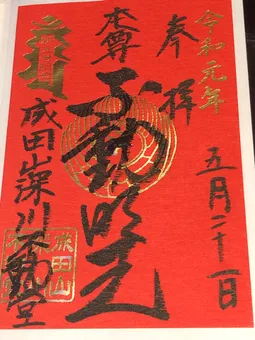 令和元年
五月二十一日
奉拝
本尊
不動明王
成田山深川不動堂
成田山